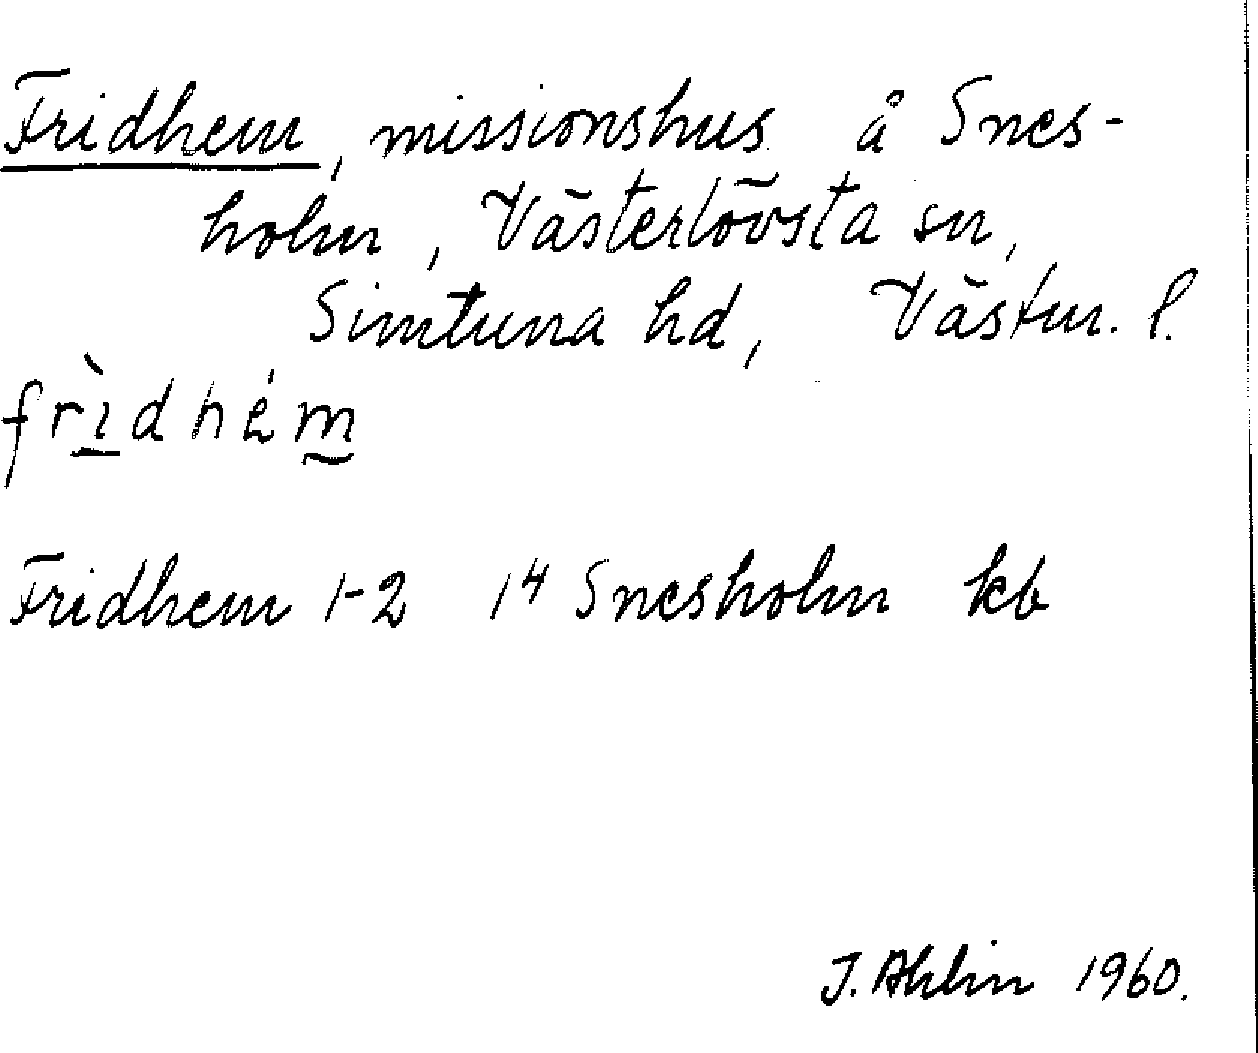 Fridhem, missionshus å Snes-
holm, Västerlövsta sn,
Simtuna hd, Västm. l.
frìdhém
Fridhem 1-2 14 Snesholm kb
J. Ahlin 1960.